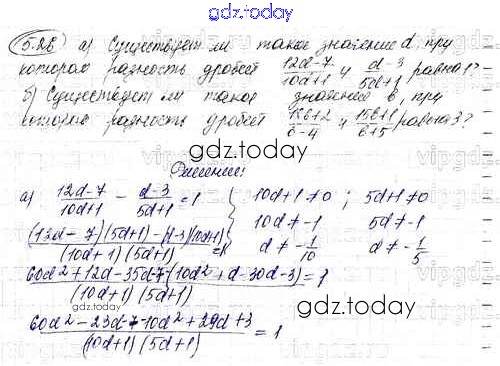 gdz.today
5.26 а) Существует ли такое значение d, при
котором разность дробей \frac{12d-7}{10d+1} и \frac{d-3}{5d+1} равна 1?
б) Существует ли такое значение в, при
котором разность дробей \frac{15в+2}{в-4} и \frac{15в+1}{в+5} равна 3?
gdz.today
Решение:
а) \frac{12d-7}{10d+1} - \frac{d-3}{5d+1} = 1 { 10d+1≠0 ; 5d+1≠0
10d≠-1 5d≠-1
\frac{(12d-7)(5d+1)-(d-3)(10d+1)}{(10d+1)(5d+1)} = 1 d≠-\frac{1}{10} d≠-\frac{1}{5}
\frac{60d²+12d-35d-7-(10d²+d-30d-3)}{(10d+1)(5d+1)} = 1
gdz.today
\frac{60d²-23d-7-10d²+29d+3}{(10d+1)(5d+1)} = 1
gdz.today